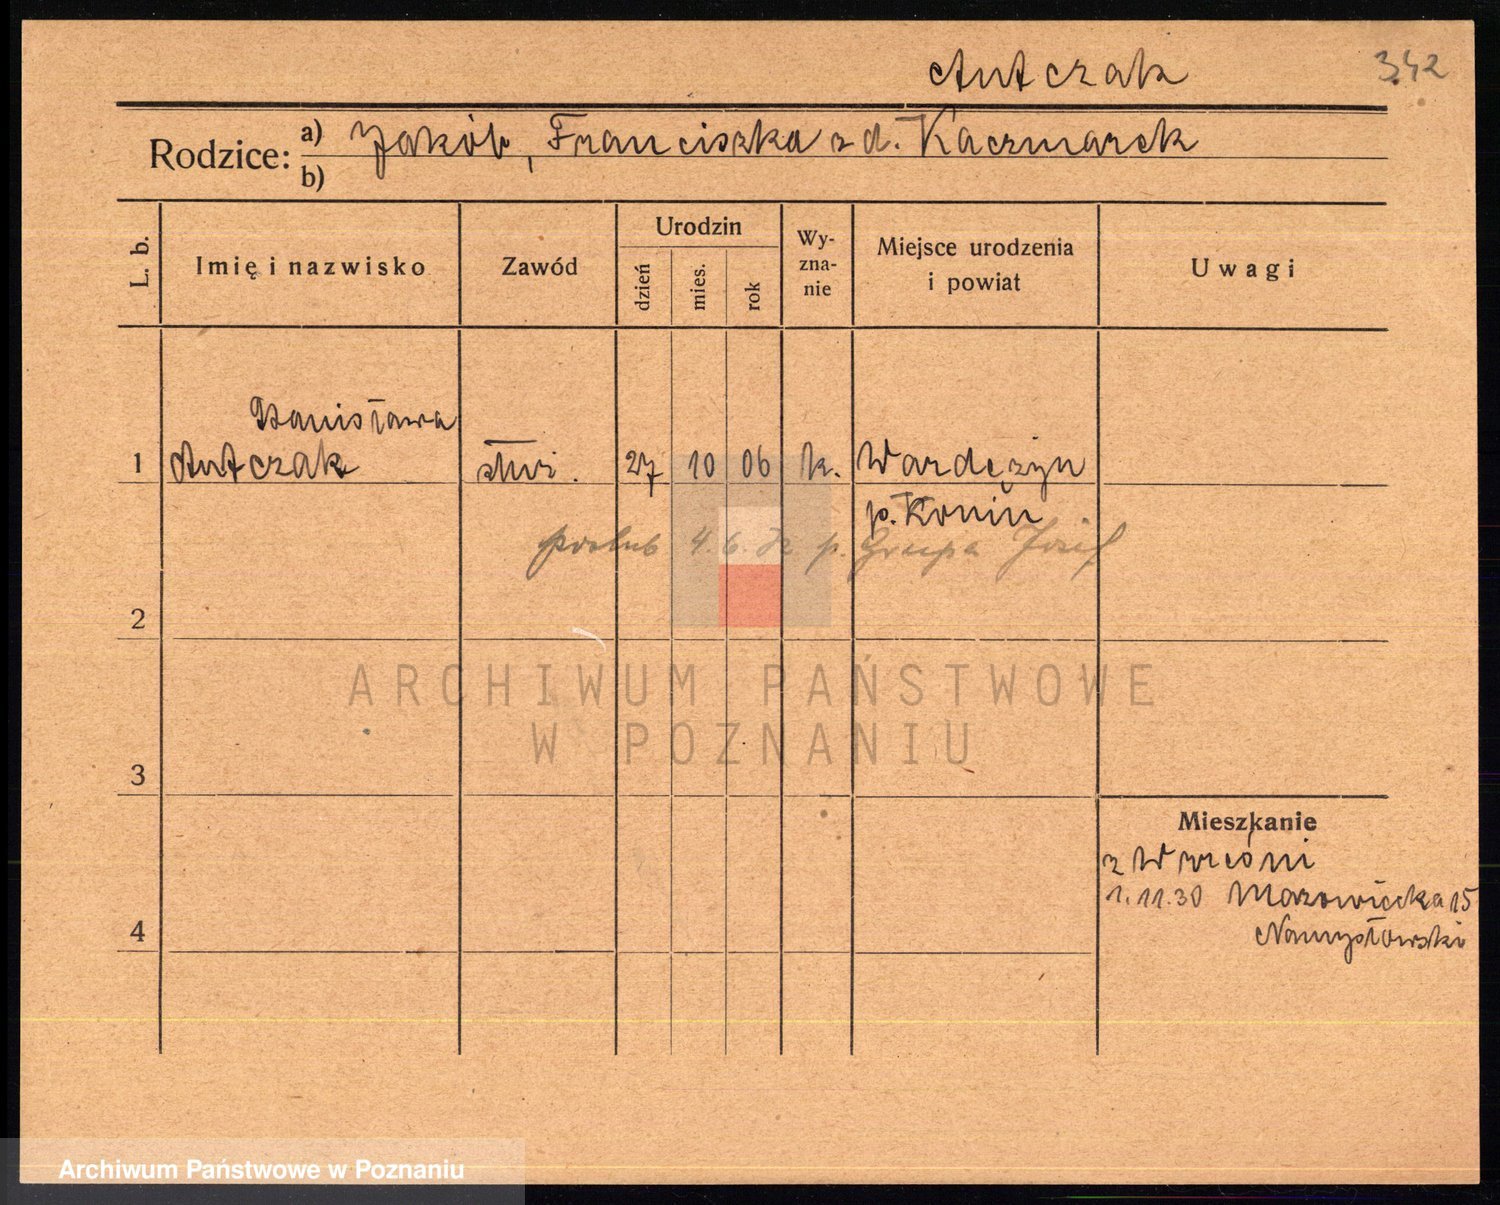 Antczak 342
Rodzice: a) Jakób, Franciszka z d. Kaczmarek
b)
L. b. Imię i nazwisko Zawód Urodzin dzień mies. rok Wyznanie Miejsce urodzenia i powiat Uwagi
Stanisława
1 Antczak służ. 27 10 06 k.
p. Konin
poślub 4. 6. 32 p. Grupa Józef
2
ARCHIWUM PAŃSTWOWE
W POZNANIU
3
Mieszkanie
z Wrześni
1.11.30 Mazowiecka 15
Namysłowski
4
Archiwum Państwowe w Poznaniu